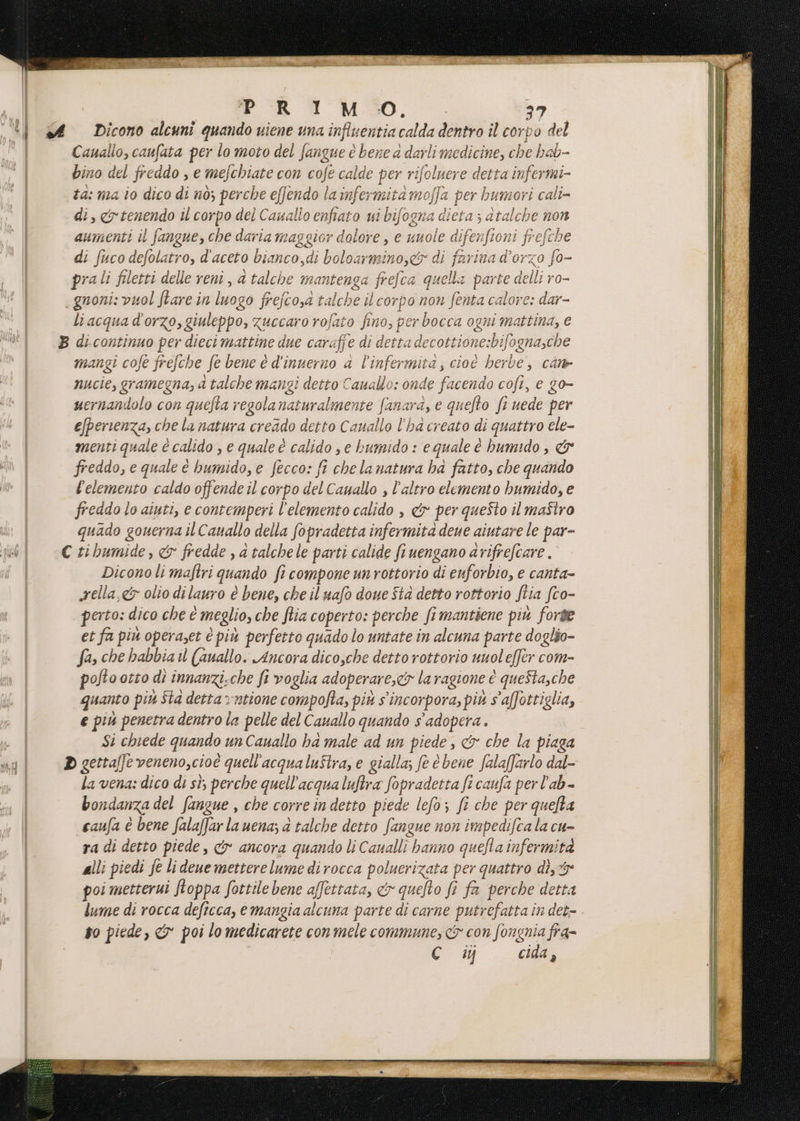 PRIMO. 37
A Dicono alcuni quando uiene una influentia calda dentro il corpo del
Cauallo, cauſata per lo moto del ſangue è bene à darli medicine, che hab-
bino del freddo, e meſchiate con coſe calde per riſoluere detta infermi-
tà: ma io dico di nò; perche eſſendo la infermità moſſa per humori cali-
di, & tenendo il corpo del Cauallo enfiato ui biſogna dieta; à talche non
aumenti il ſangue, che daria maggior dolore, e uuole difenſioni freſche
di ſuco deſolatro, d'aceto bianco, di boloarmino, & di farina d'orzo ſo-
pra li filetti delle reni, à talche mantenga freſca quella parte delli ro-
gnoni: vuol ſtare in luogo freſco, à talche il corpo non ſenta calore: dar-
li acqua d'orzo, giuleppo, zuccaro roſato fino, per bocca ogni mattina, e
B di continuo per dieci mattine due caraffe di detta decottione: biſogna, che
mangi coſe freſche ſe bene è d'inuerno à l'infermità, cioè herbe, can-
nucie, gramegna, à talche mangi detto Cauallo: onde facendo coſi, e go-
uernandolo con queſta regola naturalmente ſanarà, e queſto ſi uede per
eſperienza, che la natura creàdo detto Cauallo l'hà creato di quattro ele-
menti quale è calido, e quale è calido, e humido: e quale è humido, &
freddo, e quale è humido, e ſecco: ſi che la natura hà fatto, che quando
l'elemento caldo offende il corpo del Cauallo, l'altro elemento humido, e
freddo lo aiuti, e contemperi l'elemento calido, & per queſto il maſtro
quàdo gouerna il Cauallo della ſopradetta infermità deue aiutare le par-
C ti humide, & fredde, à talche le parti calide ſi uengano à rifreſcare.
Dicono li maſtri quando ſi compone un rottorio di euforbio, e canta-
rella, & olio di lauro è bene, che il uaſo doue ſtà detto rottorio ſtia ſco-
perto: dico che è meglio, che ſtia coperto: perche ſi mantiene più forte
et fa più opera, et è più perfetto quàdo lo untate in alcuna parte doglio-
ſa, che habbia il Cauallo. Ancora dico, che detto rottorio uuol eſſer com-
poſto otto dì innanzi, che ſi voglia adoperare, & la ragione è queſta, che
quanto più ſtà detta vntione compoſta, più s'incorpora, più s'aſſottiglia,
e più penetra dentro la pelle del Cauallo quando s'adopera.
Si chiede quando un Cauallo hà male ad un piede, & che la piaga
D gettaſſe veneno, cioè quell'acqua luſtra, e gialla; ſe è bene ſalaſſarlo dal-
la vena: dico di sì; perche quell'acqua luſtra ſopradetta ſi cauſa per l'ab-
bondanza del ſangue, che corre in detto piede leſo; ſi che per queſta
cauſa è bene ſalaſſar la uena; à talche detto ſangue non impediſca la cu-
ra di detto piede, & ancora quando li Caualli hanno queſta infermità
alli piedi ſe li deue mettere lume di rocca poluerizata per quattro dì, &
poi metterui ſtoppa ſottile bene aſſettata, & queſto ſi fa perche detta
lume di rocca deſicca, e mangia alcuna parte di carne putrefatta in det-
to piede, & poi lo medicarete con mele commune, & con ſongnia fra-
C iij cida,